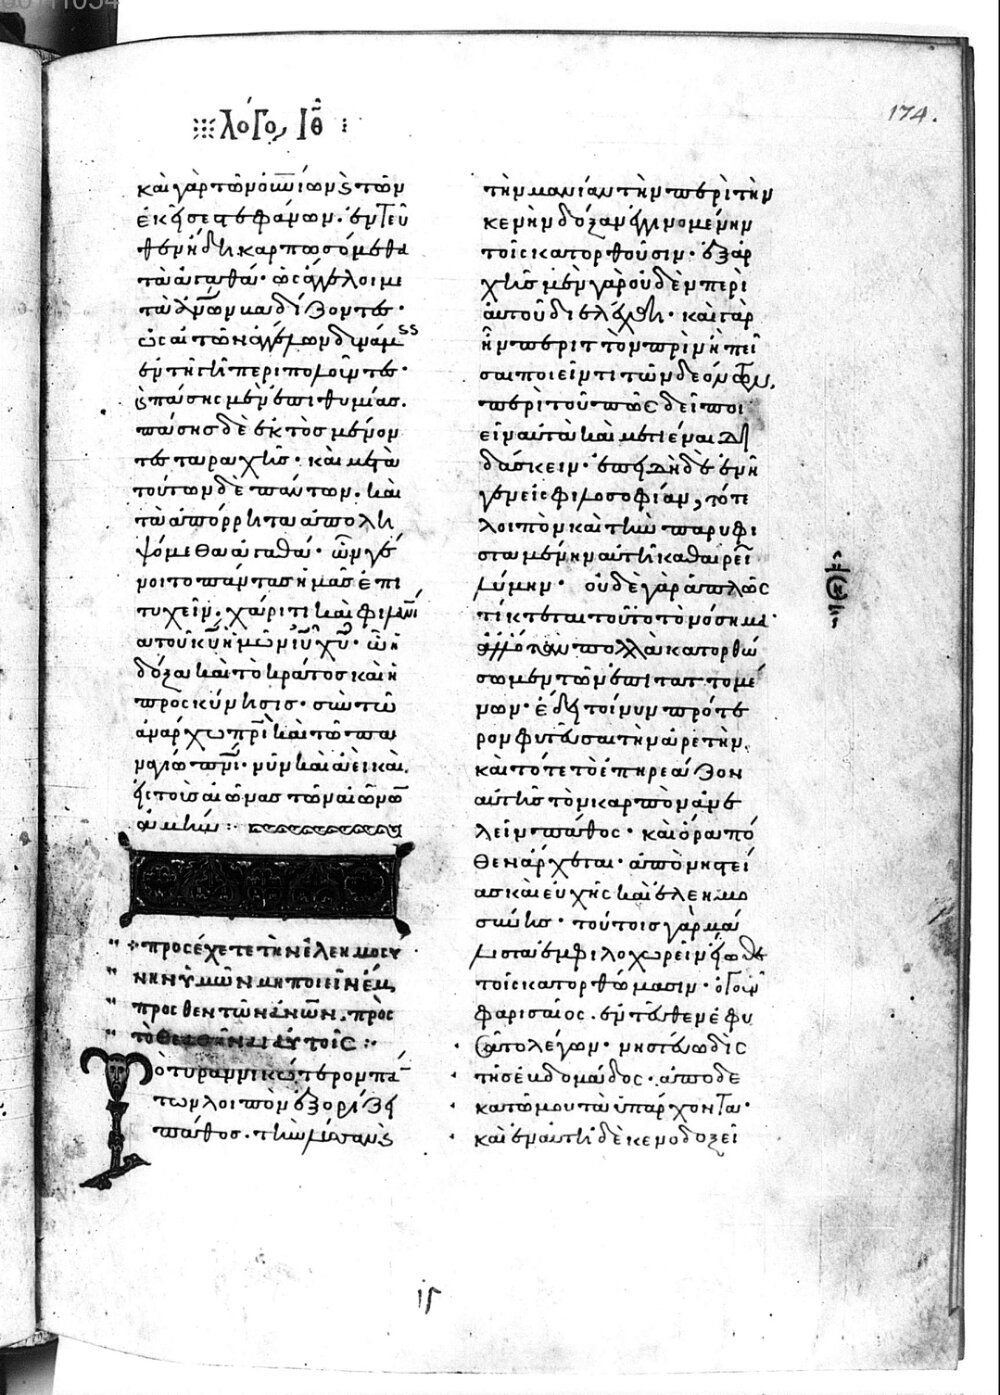 λόγο, ΙΘ
174.
καὶ γὰρ τῶν οἰωνίων ϛ τῶν
ἐκεῖσε στεφάνων. ἐντεῦ
θεν ἤδη καρπωσόμεθα
τὰ ἀγαθά. ὡς ἄγγελοι με
τὰ ἀνων βαδίζοντες.
τῇ γῇ περιπολοῦντες.
ϛ πάσης μὲν ἐπιθυμίας.
πάσης δὲ ἐκτὸς μένον
τες ταραχῆς. καὶ μετὰ
τούτων δὲ πάντων. καὶ
τὰ ἀπόρρητα ἀπολη
ψόμεθα ἀγαθά. ὧν γέ
νοιτο πάντας ἡμᾶς ἐπι
τυχεῖν. χάριτι καὶ φιλανι
α τοῦ κυ ἡμῶν ιυ χυ. ὧ ἡ
δόξα καὶ τὸ κράτος καὶ ἡ
προσκύνησις. σὺν τῶ
ἀνάρχω πρι καὶ τῶ πα
ναγίω πνι. νῦν καὶ ἀεὶ καὶ
εἰς τοὺς αἰῶνας τῶν αἰώνω
ἀμήν:
προσέχετε τὴν ἐλεημοσύ
νην ὑμῶν μὴ ποιεῖν ἔμ
προσθεν τῶν ἀνων. πρὸς
τὸ θεαθῆναι αὐτοῖς:
Τὸ τυραννικώτερον πά
των λοιπὸν ἐξορίζει
πάθος. τὴν λύσσαν ϛ
τὴν μανίαν τὴν περὶ τὴν
κενὴν δόξαν ἐγγινομένην
τοῖς κατορθοῦσιν. ἐξ ἀρ
χῆς μὲν γὰρ οὐδὲν περὶ
αὐτοῦ διελέχθη. καὶ γὰρ
ἦν περιττὸν πρὶν ἢ πεῖ
σαι ποιεῖν τι τῶν δεόντων,
περὶ τοῦ πῶς δεῖ ποι
εῖν αὐτὰ καὶ μετιέναι δι
δάσκειν. ἐπειδὴ δὲ ἐνῆ
γεν εἰς φιλοσοφίαν, τότε
λοιπὸν καὶ τὴν παρυφι
σταμένην αὐτῆ καθαιρεῖ
λύμην. οὐδὲ γὰρ ἁπλῶς
τίκτεται τοῦτο τὸ νόσημα.
ἀλλ' ὅταν πολλὰ κατορθώ
σωμεν τῶν ἐπιταττομέ
νων. ἔδει τοίνυν πρότε
ρον φυτεῦσαι τὴν ἀρετὴν.
καὶ τότε τὸ ἐπηρεάζον
αὐτῆς τὸν καρπὸν ἀνε
λεῖν πάθος. καὶ ὅρα πό
θεν ἄρχεται. ἀπὸ νηστεί
ας καὶ εὐχῆς καὶ ἐλεημο
σύνης. τούτοις γὰρ μά
λιστα ἐμφιλοχωρεῖν εἴωθε
τοῖς κατορθώμασιν. ὁ γοῦν
φαρισαῖος. ἐντεῦθεν ἐφυ
σᾶτο λέγων. νηστεύω δὶς
τῆς ἑβδομάδος. ἀποδε
κατῶ μου τὰ ὑπάρχοντα.
καὶ ἐν αὐτῆ δὲ κενοδοξεῖ